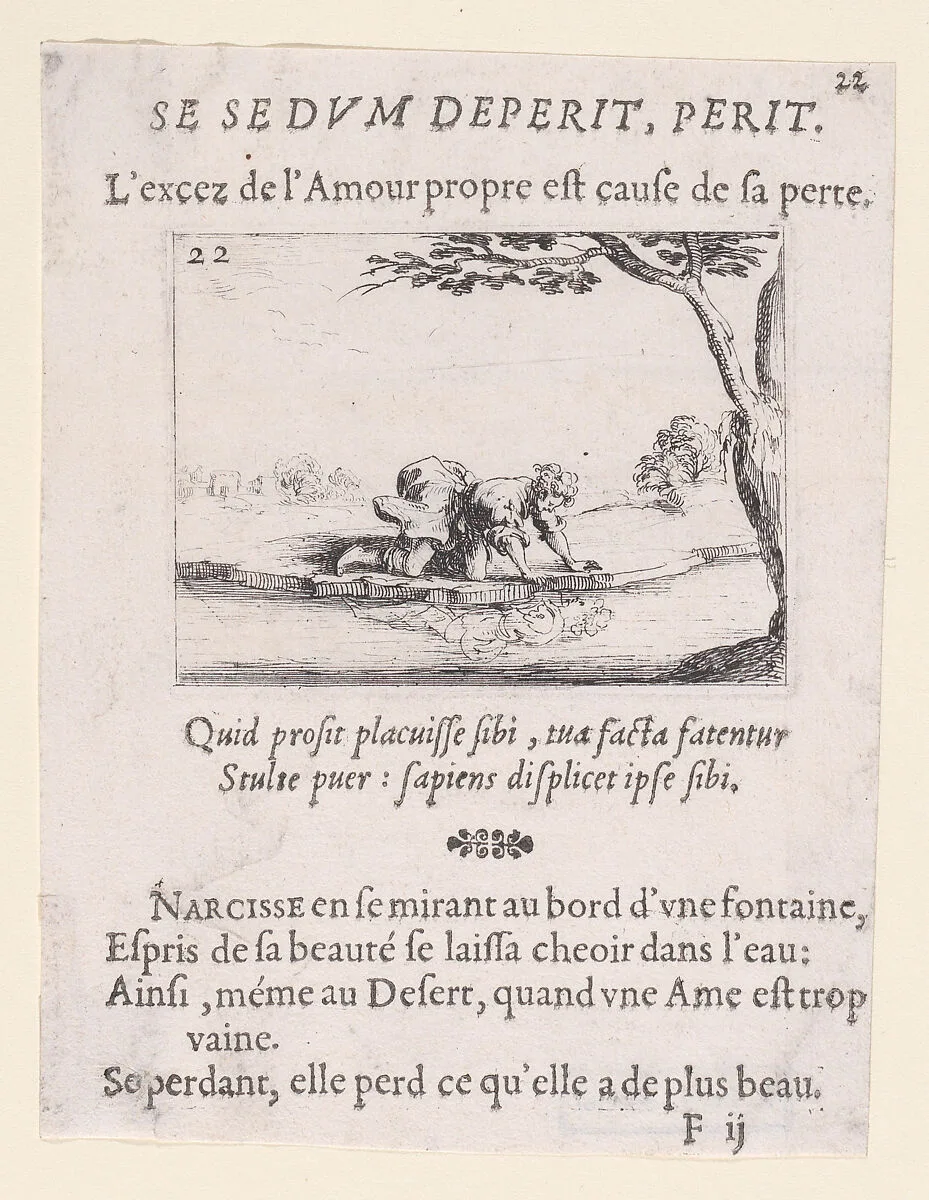 22
SE SE DVM DEPERIT, PERIT.
L'excez de l'Amour propre eſt cauſe de ſa perte.
22
Quid proſit placuiſſe ſibi, tua facta fatentur
Stulte puer : ſapiens diſplicet ipſe ſibi.
NARCISSE en ſe mirant au bord d'vne fontaine,
Eſpris de ſa beauté ſe laiſſa cheoir dans l'eau:
Ainſi, méme au Deſert, quand vne Ame eſt trop
vaine.
Se perdant, elle perd ce qu'elle a de plus beau.
F ij